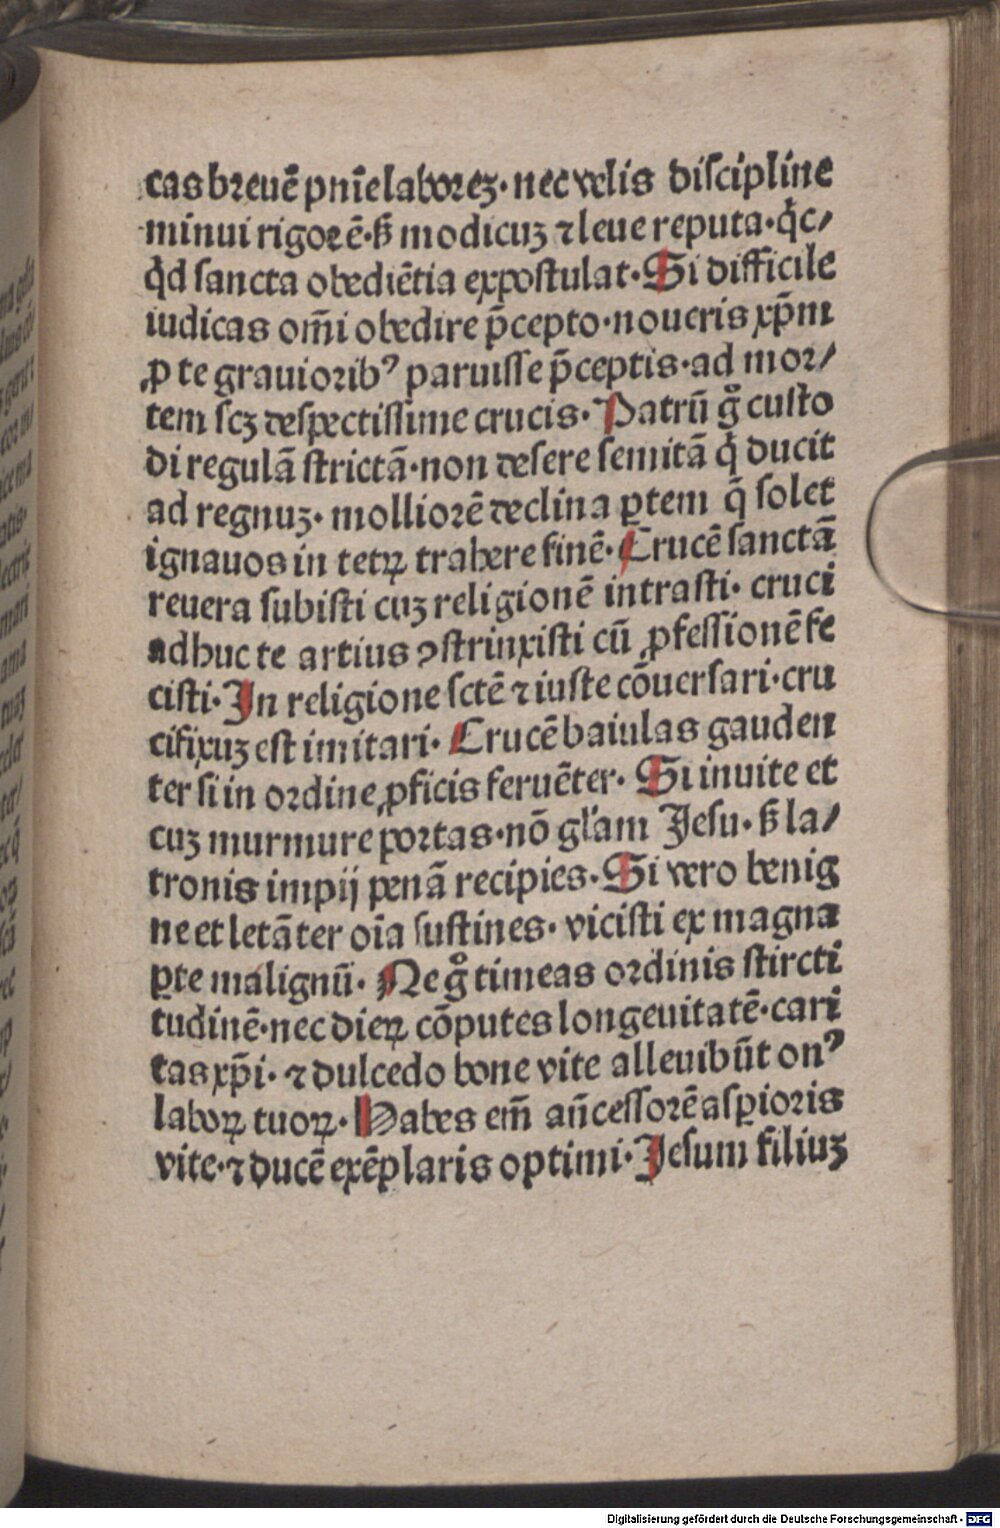 cas breuē pnīe laborez· nec velis discipline
minui rigorē·ß modicuz ⁊ leue reputa·qͥc/
qͥd sancta obediētia expostulat·Si difficile
iudicas om̄i obedire p̄cepto·noueris xp̄m
ꝓ te grauioribꝰ paruisse p̄ceptis·ad mor/
tem scz despectissime crucis·Patrū gͦ custo
di regulā strictā·non desere semitā q̄ ducit
ad regnuz· molliorē declina ꝑtem q̄ solet
ignauos in tetꝝ trahere finē·Crucē sanctā
reuera subisti cuz religionē intrasti· cruci
adhuc te artius ꝯstrinxisti cū ꝓfessionē fe
cisti·In religione sctē ⁊ iuste cōuersari·cru
cifixuz est imitari· Crucē baiulas gauden
ter si in ordine ꝓficis feruēter· Si inuite et
cuz murmure portas·nō gl'am Jesu·ß la/
tronis impij penā recipies·Si vero benig
ne et letāter oīa sustines· vicisti ex magna
ꝑte malignū· Ne gͦ timeas ordinis stircti
tudinē·nec dieꝝ cōputes longeuitatē·cari
tas xp̄i· ⁊ dulcedo bone vite alleuibūt onꝰ
laboꝝ tuoꝝ·Habes em̄ an̄cessorē asꝑioris
vite·⁊ ducē exēplaris optimi·Jesum filiuz
Digitalisierung gefördert durch die Deutsche Forschungsgemeinschaft - DFG